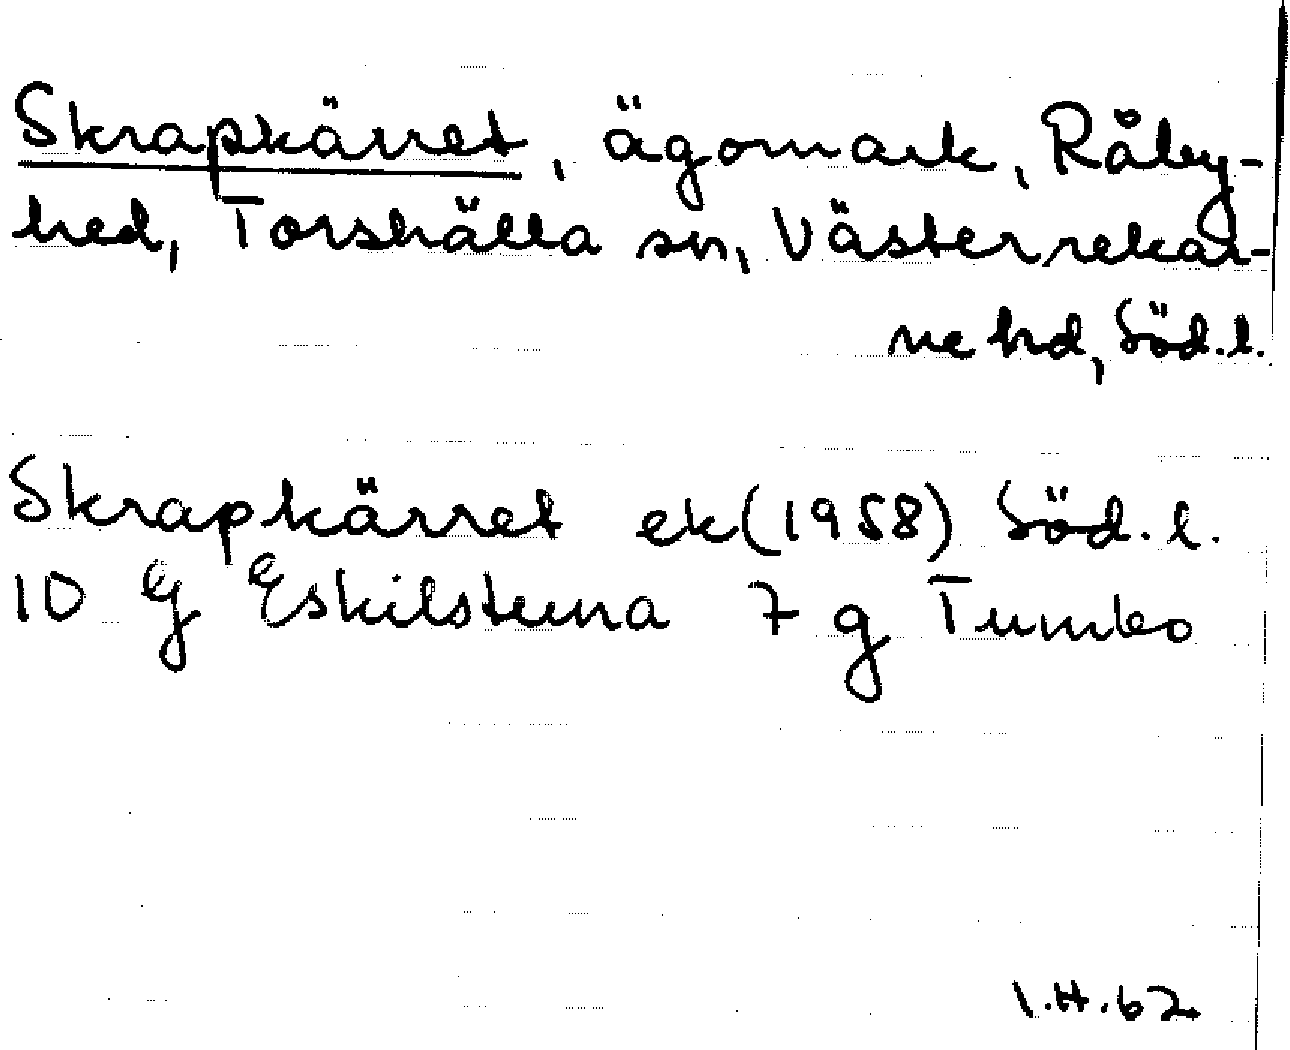 Skrapkärret, ägomark, Råby-
hed, Torshälla sn, Västerrekar-
ne hd, Söd.l.
Skrapkärret ek(1958) Söd.l.
10 G Eskilstuna 7 g Tumbo
I.H.62